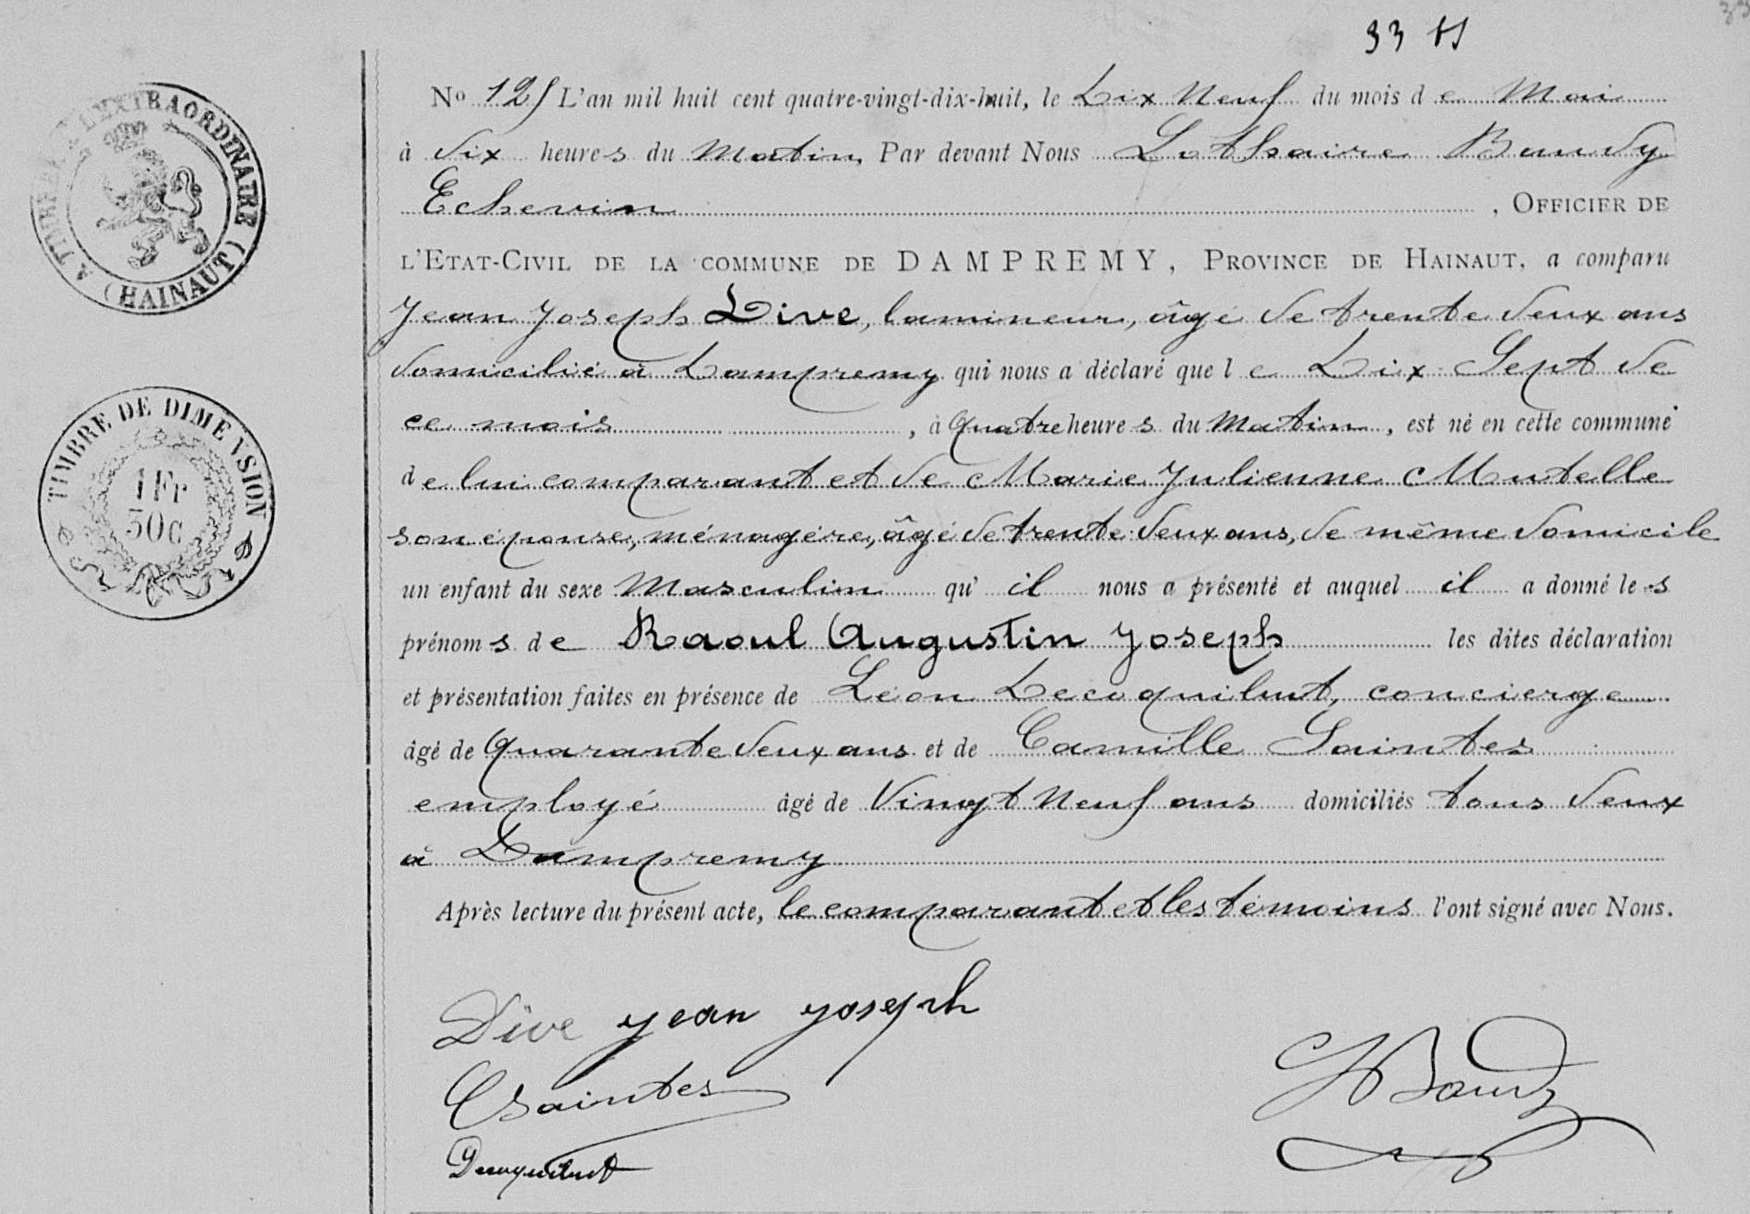 33
A TIMBRER A L'EXTRAORDINAIRE (HAINAUT)
TIMBRE DE DIMENSION
1 Fr
50 c
No 125 L'an mil huit cent quatre-vingt-dix-huit, le Dix Neuf du mois de Mai
à dix heures du Matin Par devant Nous Lothaire Baudy
Echevin , OFFICIER DE
L'ETAT-CIVIL DE LA COMMUNE DE DAMPREMY, PROVINCE DE HAINAUT, a comparu
Jean Joseph Dive, lamineur, âgé de trente deux ans
domicilié à Dampremy qui nous a déclaré que le Dix Sept de
ce mois , à quatre heures du Matin , est né en cette commune
de lui comparant et de Marie Julienne Mutelle
son épouse, ménagère, âgé de trente deux ans, de même domicile
un enfant du sexe Masculin qu' il nous a présenté et auquel il a donné les
prénoms de Raoul Augustin Joseph les dites déclaration
et présentation faites en présence de Léon Decoquibut, concierge
âgé de quarante deux ans et de Camille Saintes
employé âgé de Vingt Neuf ans domiciliés tous deux
à Dampremy
Après lecture du présent acte, le comparant et les témoins l'ont signé avec Nous.
Dive Jean Joseph
CSaintes
LBaudy